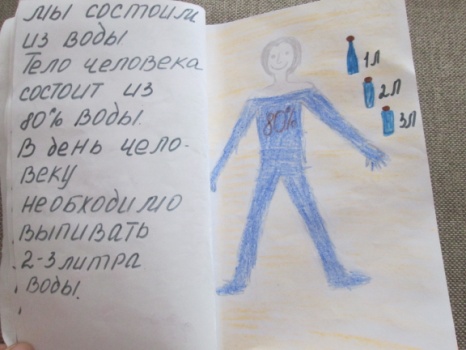 мы состоим
из воды
Тело человека
состоит из
80% воды.
В день чело-
веку
необходимо
выпивать
2-3 литра
воды.
80%
1л
2л
3л